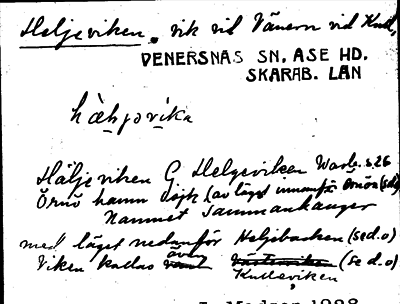 Heljeviken, vik vid Vänern vid Kull,
VENERSNAS SN. ASE HD.
SKARAB. LAN
hæ̀hjəvìka
Häljeviken G Helgeviken Warb. s. 26
Örnö hamn Döjk (av läget innanför Örnön (sed.o)
Namnet sammanhänger
med läget nedanför Heljebacken (sed.o)
Viken kallas även (se d.o)
Kulleviken